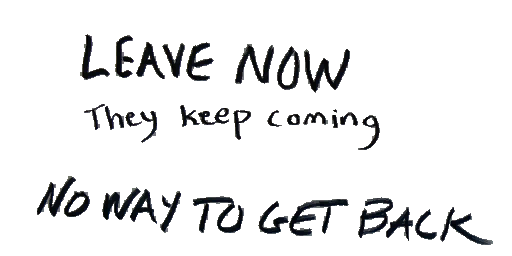 LEAVE NOW
They keep coming
NO WAY TO GET BACK